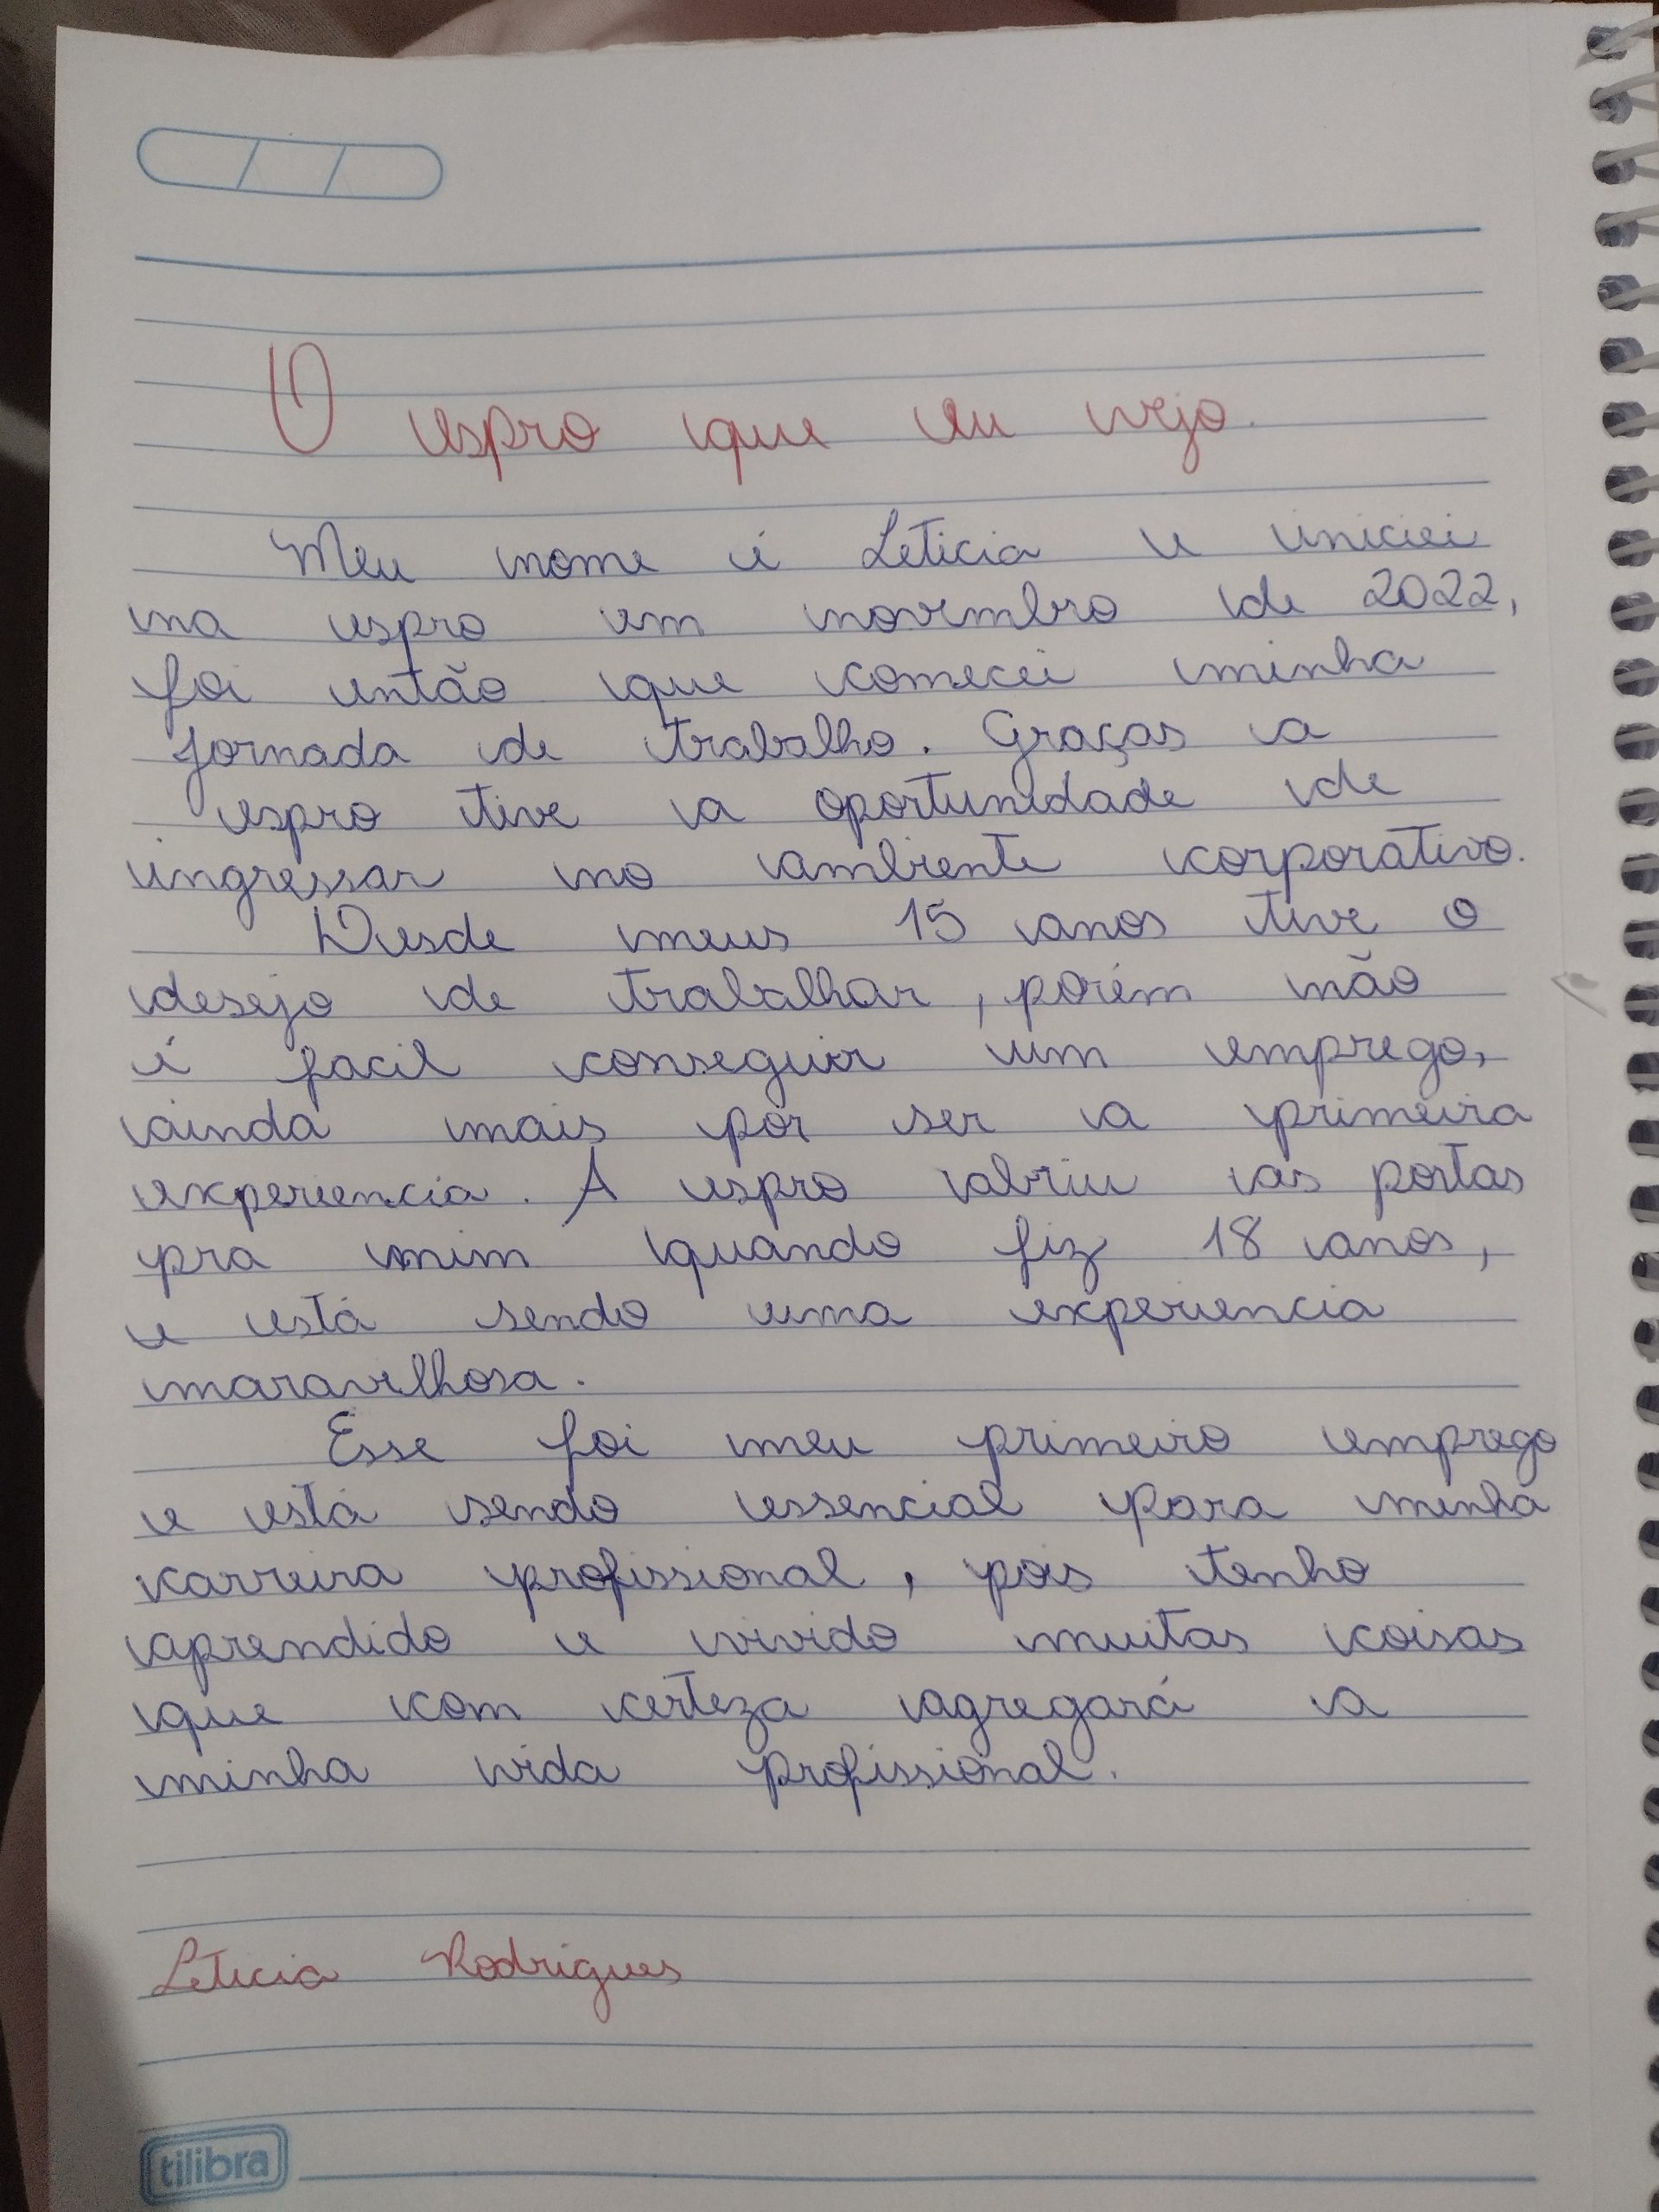 O espro que eu vejo.
Meu nome é Leticia e iniciei
na espro em novembro de 2022,
foi então que comecei minha
jornada de trabalho. Graças a
espro tive a oportunidade de
ingressar no ambiente corporativo.
Desde meus 15 anos tive o
desejo de trabalhar, porém não
é facil conseguir um emprego,
ainda mais por ser a primeira
experiencia. A espro abriu as portas
pra mim quando fiz 18 anos,
e está sendo uma experiencia
maravilhosa.
Esse foi meu primeiro emprego
e está sendo essencial para minha
carreira profissional, pois tenho
aprendido e vivido muitas coisas
que com certeza agregará a
minha vida profissional.
Leticia Rodrigues
tilibra